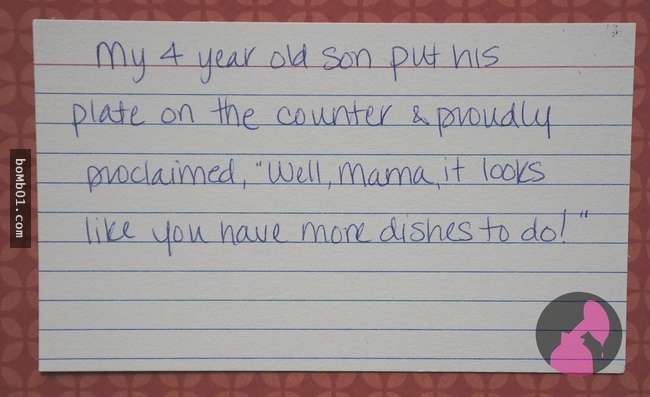 My 4 year old son put his
plate on the counter & proudly
proclaimed, "Well, Mama, it looks
like you have more dishes to do!"
boMb01.com